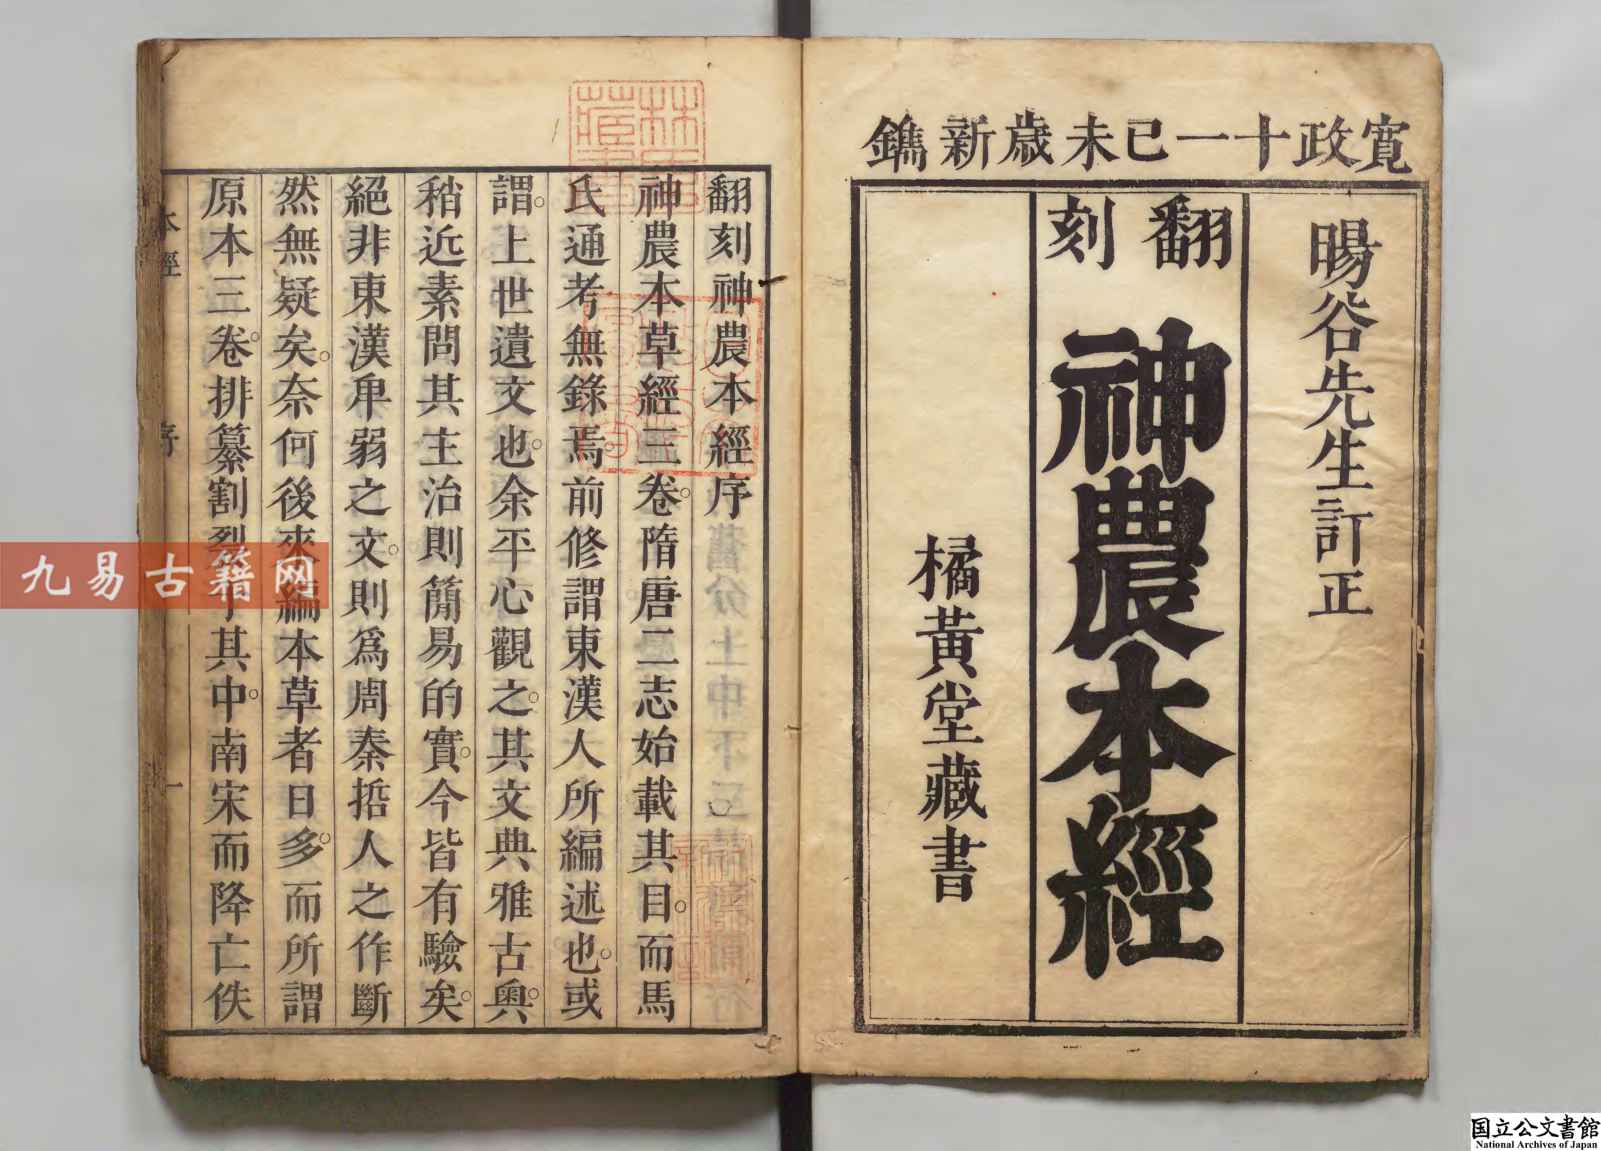 寛政十一己未歳新鐫
暘谷先生訂正
翻刻
神農本經
橘黃堂藏書
翻刻神農本經序
神農本草經三卷。隋唐二志始載其目。而馬
氏通考無錄焉。前修謂東漢人所編述也。或
謂。上世遺文也。余平心觀之。其文典雅古奧。
稍近素問其主治則簡易的實。今皆有驗矣。
絕非東漢卑弱之文。則爲周秦哲人之作斷
然無疑矣。奈何後來編本草者日多。而所謂
原本三卷。排纂割裂于其中。南宋而降亡佚
本經
序
一
九易古籍网
国立公文書館
National Archives of Japan